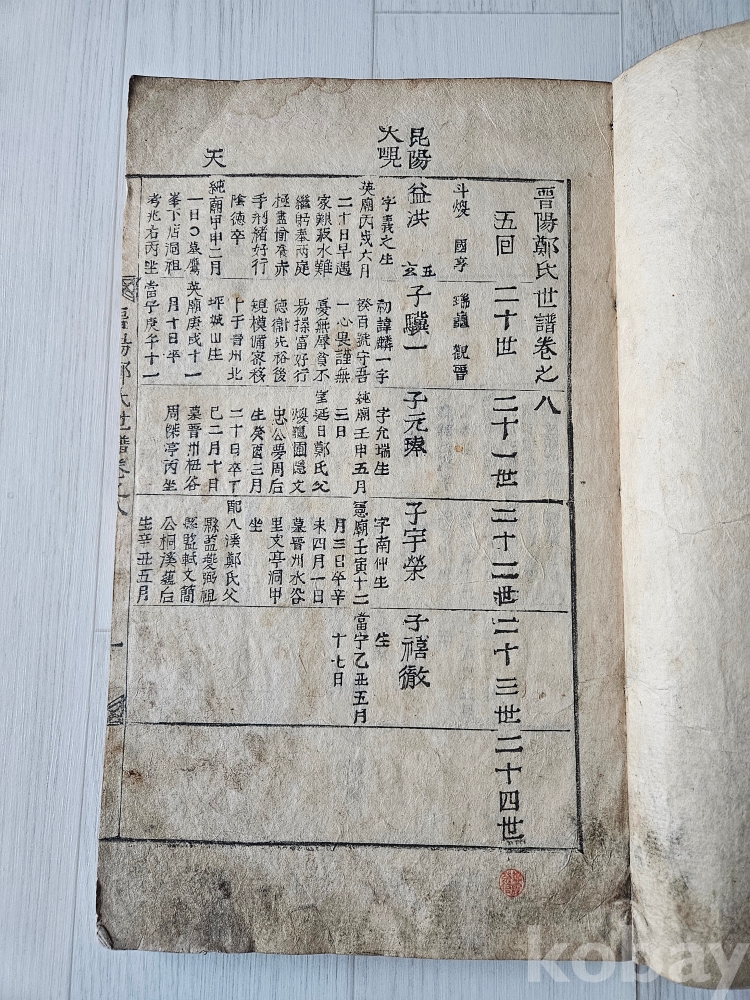 昆陽
大
天
晉陽鄭氏世譜卷之八
五回 二十世 二十一世 二十二世 二十三世 二十四世
國亨
益洪
字義之生
英廟丙戌六月
二十日早遇
家艱菽水難
繼躬奉丙庭
極盡愉 赤
手刱緖好行
陰德卒
純廟甲申二月
一日〇墓鷹
峯下店洞祖
考兆右丙坐
玄五
子驥一
初諱麟一字
百號守吾
一心畏謹無
憂無辱貧不
易操富好行
德衛先裕後
規模備家移
卜于晉州北
坪城山生
英廟庚戌十一
月十日卒
當宁庚午十一
子元臻
字允瑞生
純廟壬申五月
三日
延日鄭氏父
煥龍圃隱文
忠公夢周后
生癸酉三月
二十日卒丁
巳二月十日
墓晉州杻谷
周傑亭丙坐
子宇榮
字南仲生
憲廟壬寅十二
月三日卒辛
未四月一日
墓晉州水谷
里文亭洞甲
坐
配八溪鄭氏父
縣監夔弼祖
縣監軾文簡
公桐溪蘊后
生辛丑五月
子禧徹
生
當宁乙丑五月
十七日
晉陽鄭氏世譜卷之八
一
kobay